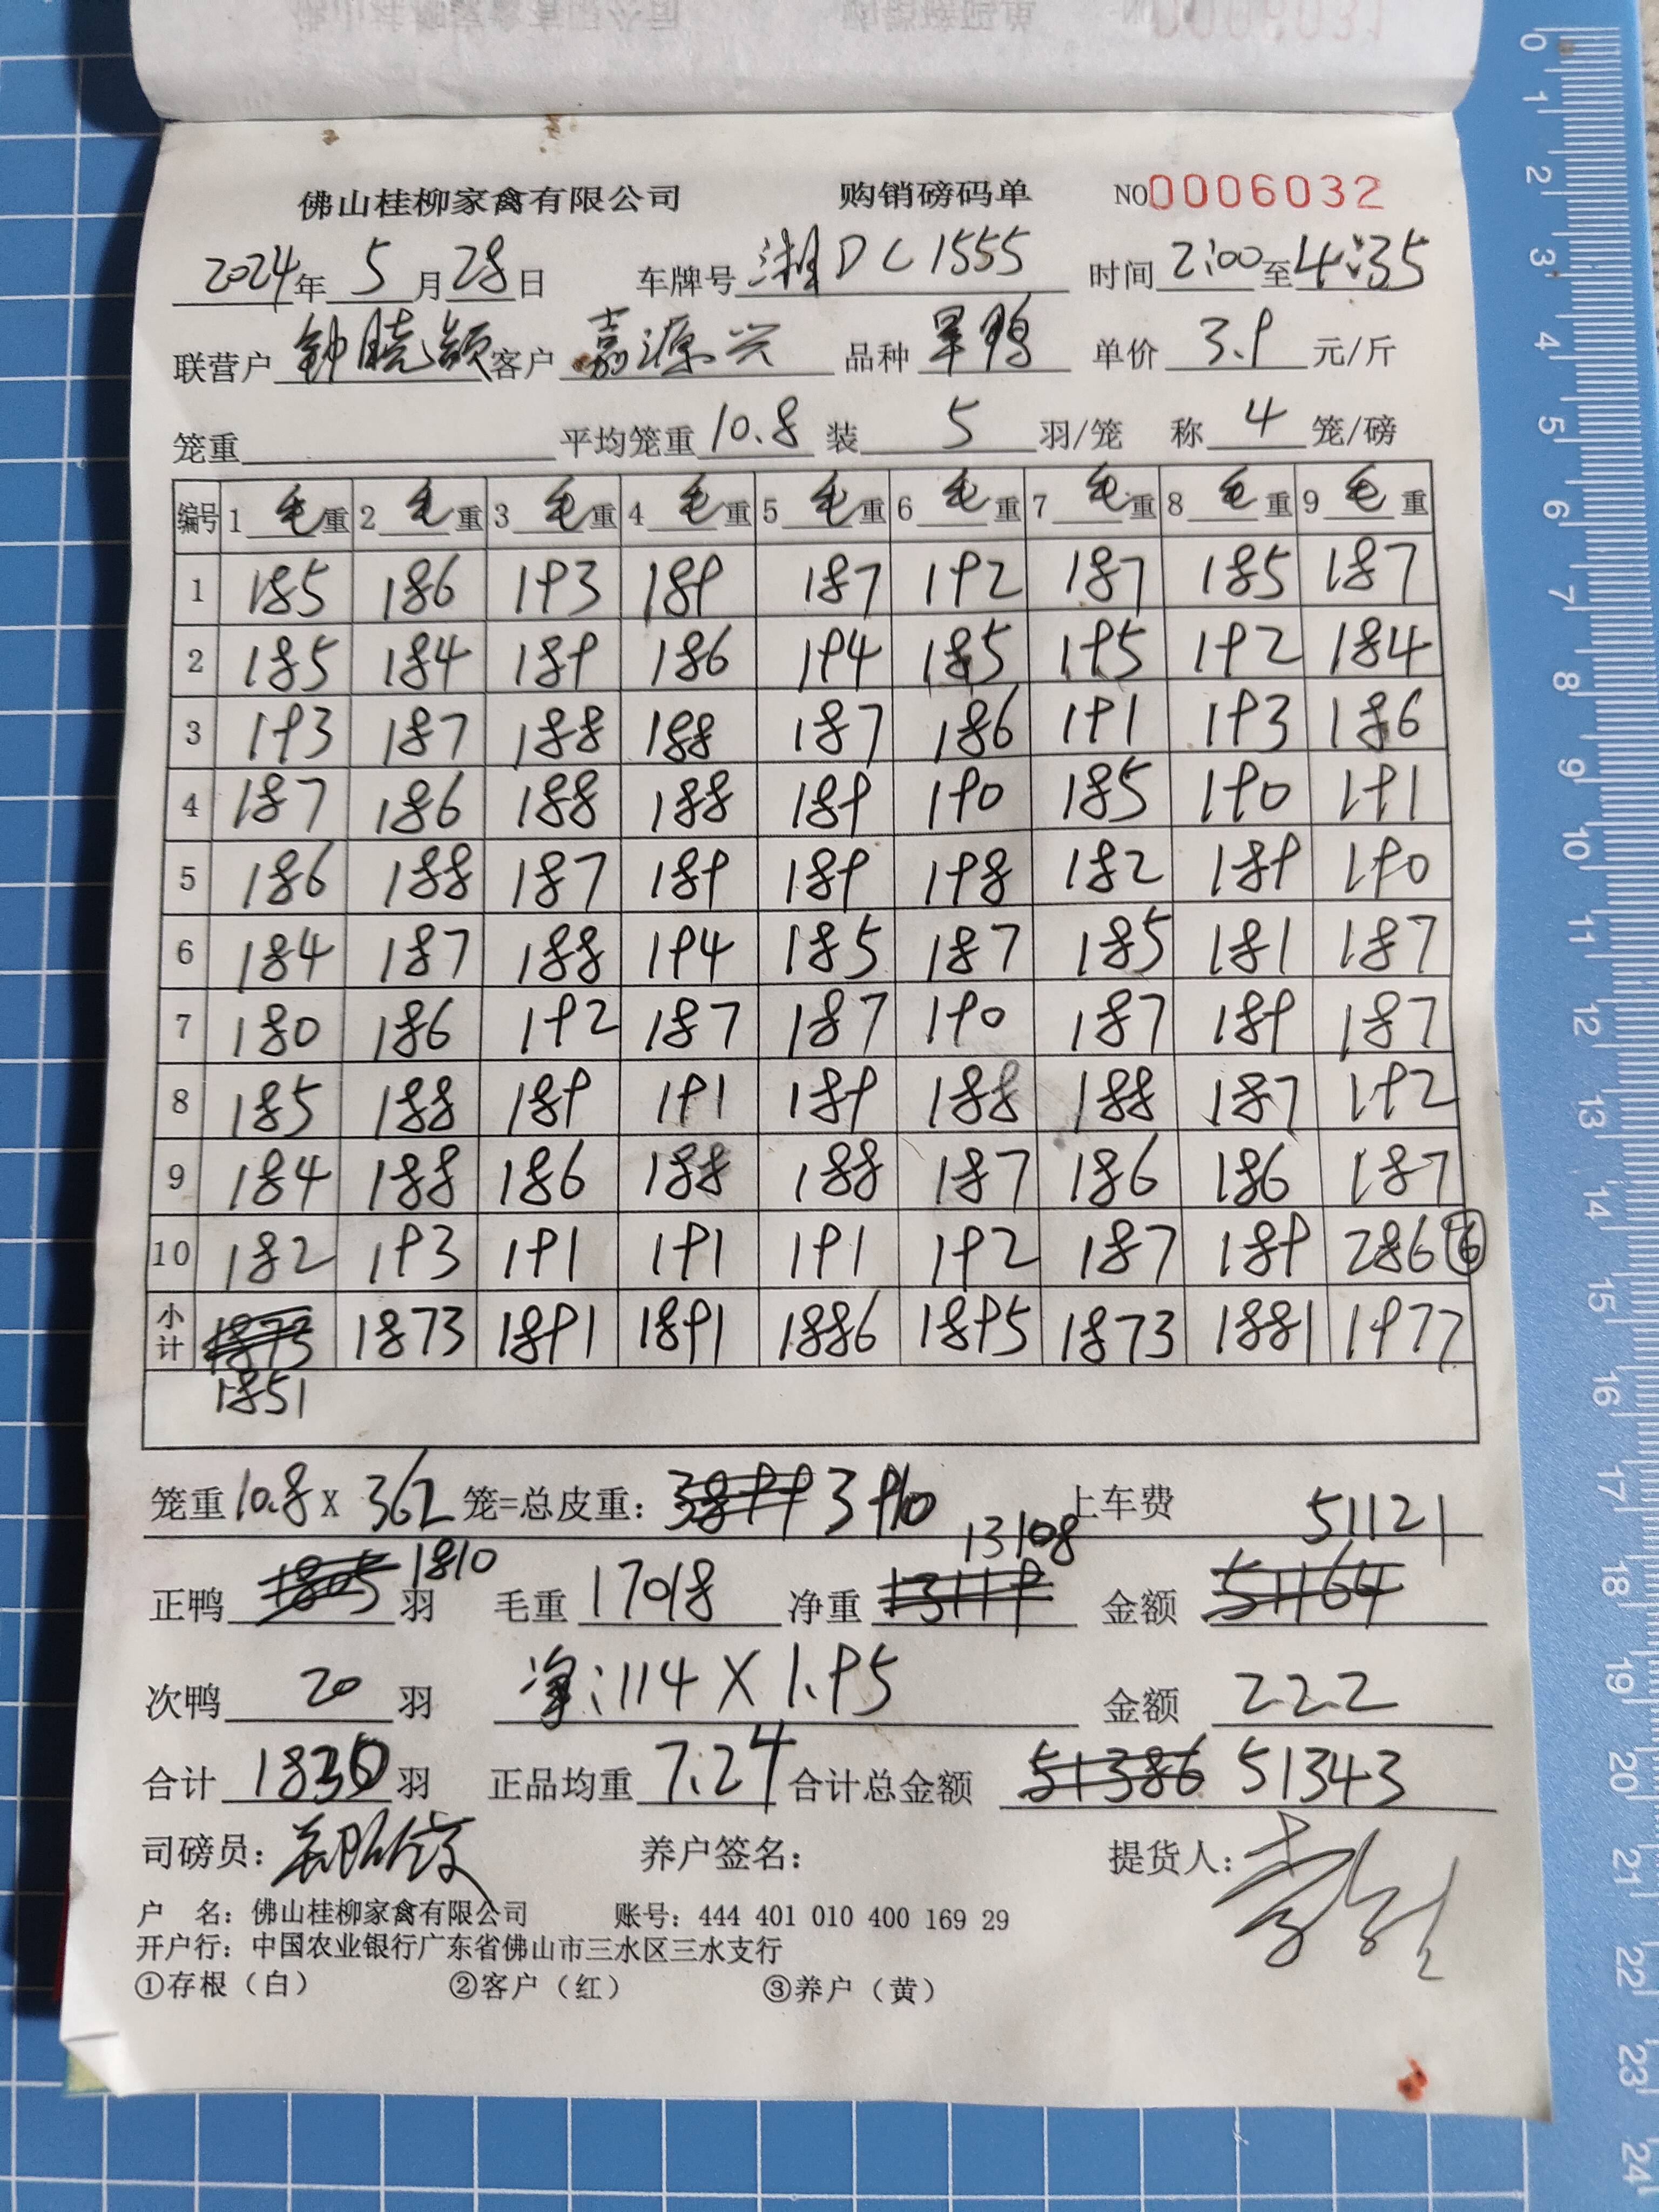 佛山桂柳家禽有限公司 购销磅码单 NO0006032
2024年5月28日 车牌号湘DC1555 时间2:00至4:35
联营户钟晓颖客户嘉源兴 品种旱鸭 单价3.9元/斤
笼重 平均笼重10.8装5羽/笼 称4笼/磅
编号 1毛重 2毛重 3毛重 4毛重 5毛重 6毛重 7毛重 8毛重 9毛重
1 185 186 193 189 187 192 187 185 187
2 185 184 189 186 194 185 195 192 184
3 193 187 188 188 187 186 191 193 186
4 187 186 188 188 189 190 185 190 191
5 186 188 187 189 189 198 182 189 190
6 184 187 188 194 185 187 185 181 187
7 180 186 192 187 187 190 187 189 187
8 185 188 189 191 189 188 188 187 192
9 184 188 186 188 188 187 186 186 187
10 182 193 191 191 191 192 187 189 286⑥
小计 1875 1873 1891 1891 1886 1895 1873 1881 1977
1851
笼重10.8X362笼=总皮重：3899 3910 上车费 51121
正鸭1805 1810羽 毛重17018 净重13119 13108 金额51164
次鸭20羽 净：114X1.95 金额222
合计1830羽 正品均重7.24 合计总金额51386 51343
司磅员： 养户签名： 提货人：
户 名：佛山桂柳家禽有限公司 账号：444 401 010 400 169 29
开户行：中国农业银行广东省佛山市三水区三水支行
①存根（白） ②客户（红） ③养户（黄）